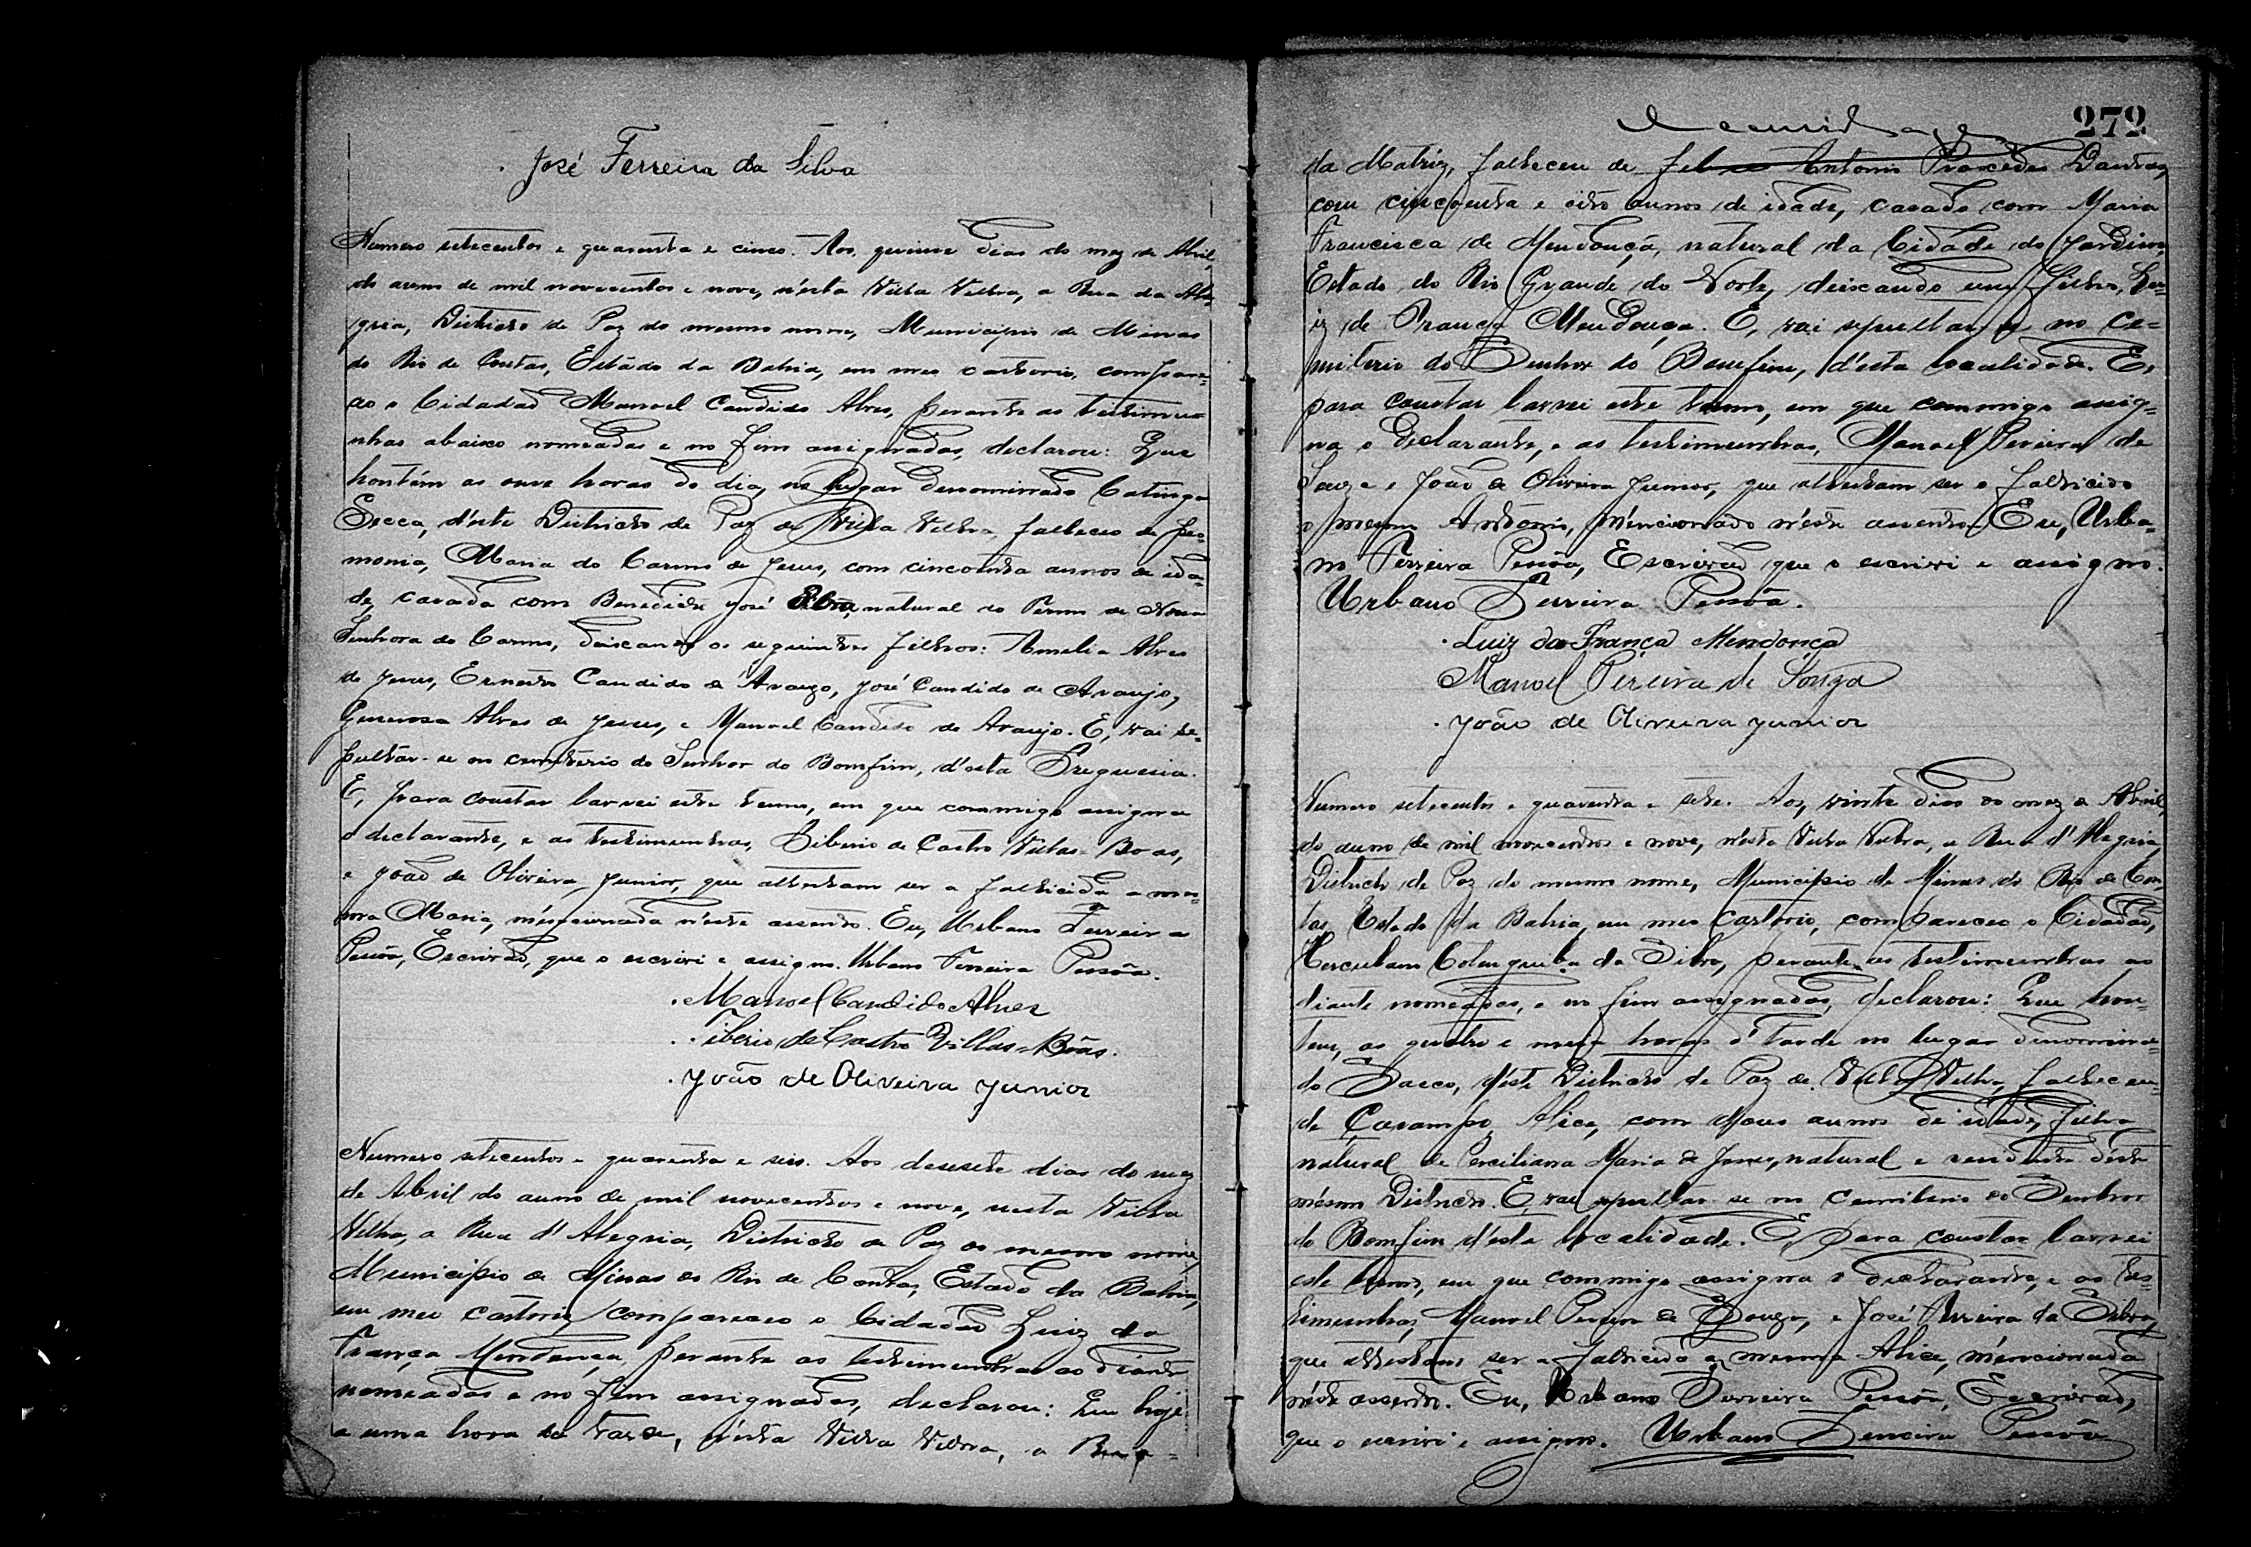 José Ferreira da Silva
Numero setecentos e quarenta e cinco. Aos, quinze dias do mez de Abril,
do anno de mil novecentos e nove, n'esta Villa Velha, a Rua da Ale-
gria, Districto de Paz do mesmo nome, Municipio de Minas
do Rio de Contas, Estado da Bahia, em meu cartorio, compare-
ceo o Cidadaõ Manoel Candido Alves, perante as testimu-
nhas abaixo nomeadas e no fim assignadas, declarou: Que
hontém as onve horas do dia, no lugar denominado Catinga
Secca, d'este Districto de Paz de Villa Velha, falleceo de
monia, Maria do Carmo de Jesus, com cincoenta annos de ida-
de, casada com Benedicto José natural do Nossa
Senhora do Carmo, deixando os seguintes filhos: Amelia Alves
de Jesus, Ernesto Candido de Araujo, José Candido de Araujo,
Generosa Alves de Jesus, e Manoel Candido de Araujo. E, vai se-
pultar-se no cemiterio do Senhor do Bomfim, d'esta Freguesia.
E, para constar lavrei este termo, em que commigo assigna
o declarante, e as testimunhas, Tiberio de Castro Villas-Boas,
e João de Oliveira Junior, que attestam ser a fallicida a mes-
ma Maria, méncionada n'este assento. Eu, Urbano Ferreira
Pessôa, Escrivaõ, que o escrivi e assigno. Urbano Ferreira Pessôa.
Manoel Candido Alves
Tiberio de Castro Villas-Bôas.
João de Oliveira Junior
Numero setecentos e quarenta e seis. Aos desesete dias do mez
de Abril do anno de mil novecentos e nove, nesta Villa
Velha, a Rua d'Alegria, Districto de Paz do mesmo nome,
Municipio de Minas do Rio de Contas, Estado da Bahia,
em meu cartorio, compareceo o Cidadaõ Luiz da
França Mendonça, perante as testimunhas ao diante
nomeadas e no fim assignadas, declarou: Que hoje
a uma hora da tarde, n'esta Villa Velha, a
272
da Matriz, falleceu de Antonio
com cincoenta e oito annos de idade, casado com Maria
Francisca de Mendonça, natural da Cidade do Jardim,
Estado do Rio Grande do Norte, deixando um filho, Lu-
iz de França Mendonça. E, vai sepultar-se no Ce-
miterio do Senhor do Bomfim, d'esta localidade. E,
para constar lavrei este termo, em que commigo assig-
na o declarante, e as testimunhas, Manoel Pereira de
Souza e João de Oliveira Junior, que attestam ser o fallicido
o mesmo Antonio, méncionado n'este assento. Eu, Urba-
no Ferreira Pessôa, Escrivaõ que o escrivi e assigno.
Urbano Ferreira Pessôa.
Luiz da França Mendonça
Manoel Pereira de Souza
João de Oliveira Junior
Numero setecentos e quarenta e sete. Aos, vinte dias do mez de Abril,
do anno de mil novecentos e nove, n'esta Villa Velha, a Rua d'Alegria,
Districto de Paz do mesmo nome, Municipio de Minas do Rio de Con-
tas, Estado da Bahia, em meu cartorio, compareceo o Cidadaõ,
Herculano da Silva, perante as testimunhas ao
diante nomeadas, e no fim assignadas, declarou: Que hon-
tem, as quatro e meia horas d'tarde no lugar denomina-
do Sacco, d'este Districto de Paz de Villa Velha, falleceu
de Çarampo, Alice, com dous annos de idade, filha
natural de Perciliana Maria de Jesus, natural e residente d'este
mésmo Districto. E, vai sepultar-se no cemiterio do Senhor
do Bomfim d'esta localidade. E, para constar lavrei
este termo, em que commigo assigna o declarante, e as tes-
timunhas, Manoel Pereira de Souza, e José Ferreira da Silva,
que attestam ser a fallicida a mesma Alice, méncionada
n'este assento. Eu, Urbano Ferreira Pessôa, Escrivaõ,
que o escrivi e assigno. Urbano Ferreira Pessôa